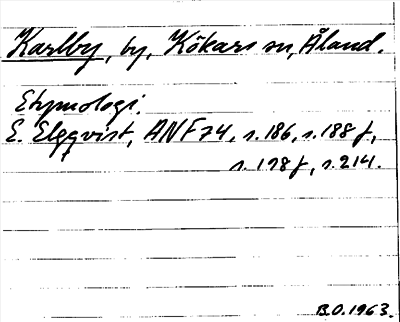 Karlby, by, Kökars sn, Åland.
Etymologi.
E. Elgqvist, ANF 74, s. 186, s. 188 f,
s. 198 f, s. 214.
B.O. 1963.